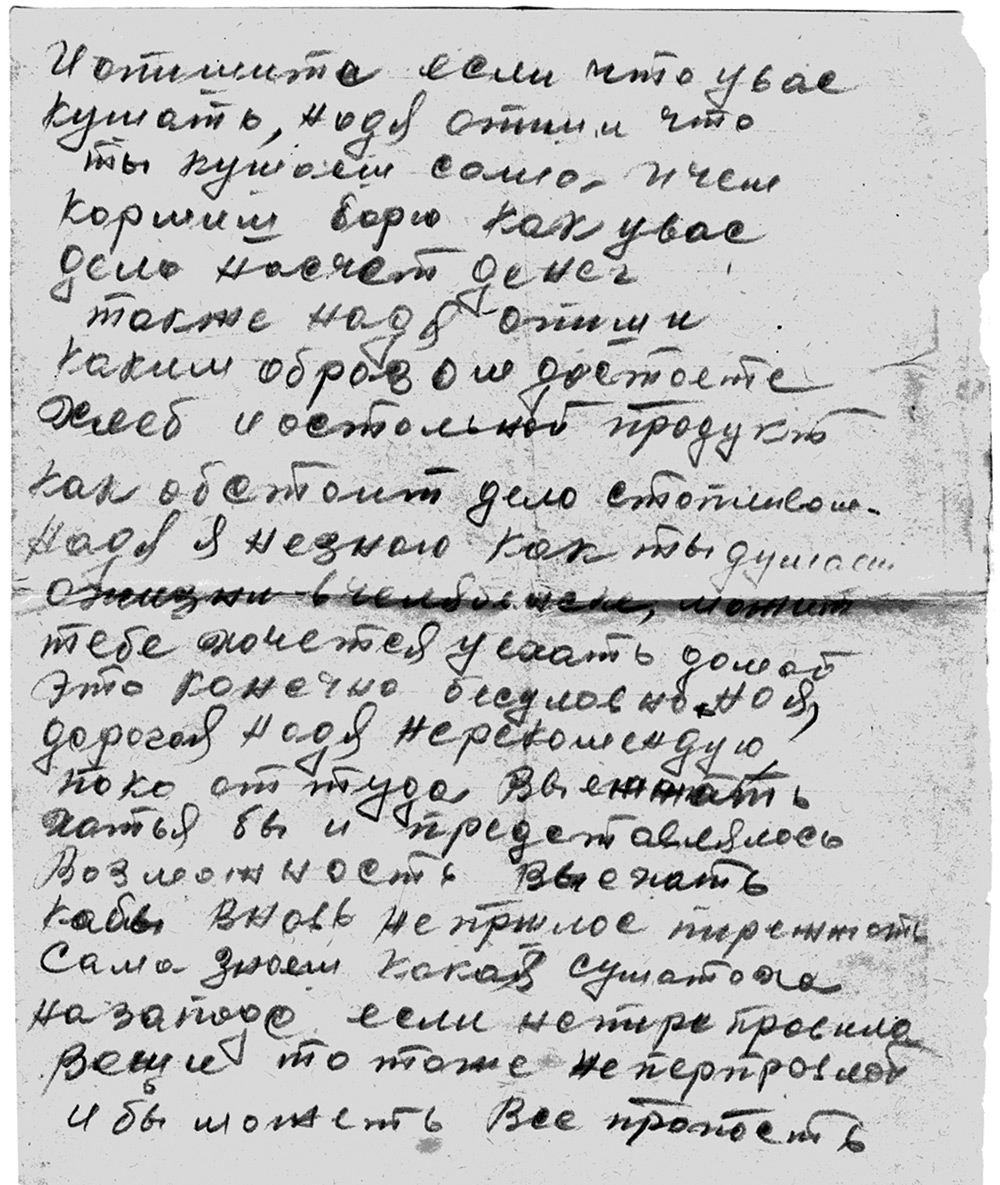 Й опишите если что увас
кушать, надя опиши что
ты кушаеш сама, ичем
кормиш борю как увас
дело насчет денег
также надя опиши
каким образом достаете
хлеб и остальной продукт
как обстоит дело стопливом.
Надя я незнаю как ты думаеш
ожизни в челябинске, может
тебе хочется уехать домой
это конечно бесуловно. но я,
дорогая надя нерекомендую
пока оттуда выежжать
хатья бы и представлялось
возможность выехать
кабы вновь непршлос пирежжать
сама знаеш какая суматоха
на западе если непиреправила
вещи то тоже неперправляй
и бы может ь все пропасть